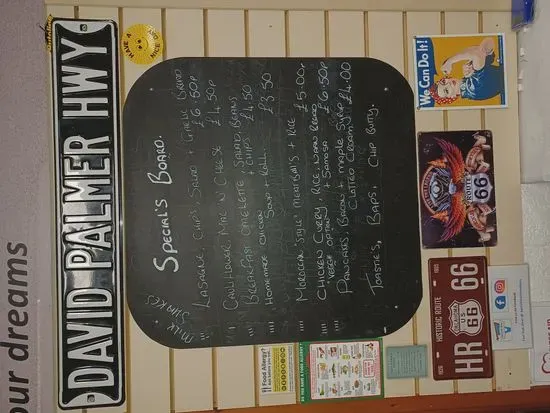 DAVID PALMER HWY
HAVE A NICE DAY
We Can Do It!
SPECIAL'S BOARD.
LASAGNE, CHIPS SALAD + GARLIC BREAD
£6.50P
CAULIFLOWER MAC N CHEESE £4.50P
BREAKFAST OMELETTE, SALAD, BEANS
+ CHIPS £4.50
HOMEMADE CHICKEN SOUP + ROLL £3.50
MOROCCAN "STYLE" MEATBALLS + RICE £5.00P
CHICKEN CURRY, RICE, NAAN BREAD
VEGGIE OPTION + SAMOSA £6.50P
PANCAKES, BACON + MAPLE SYRUP
CLOTTED CREAM £4.00
TOASTIES, BAPS, CHIP BUTTY.
MILK SHAKES
ROUTE
66
HISTORIC ROUTE
66
HR
US
66
1926
Food Allergy?
our dreams